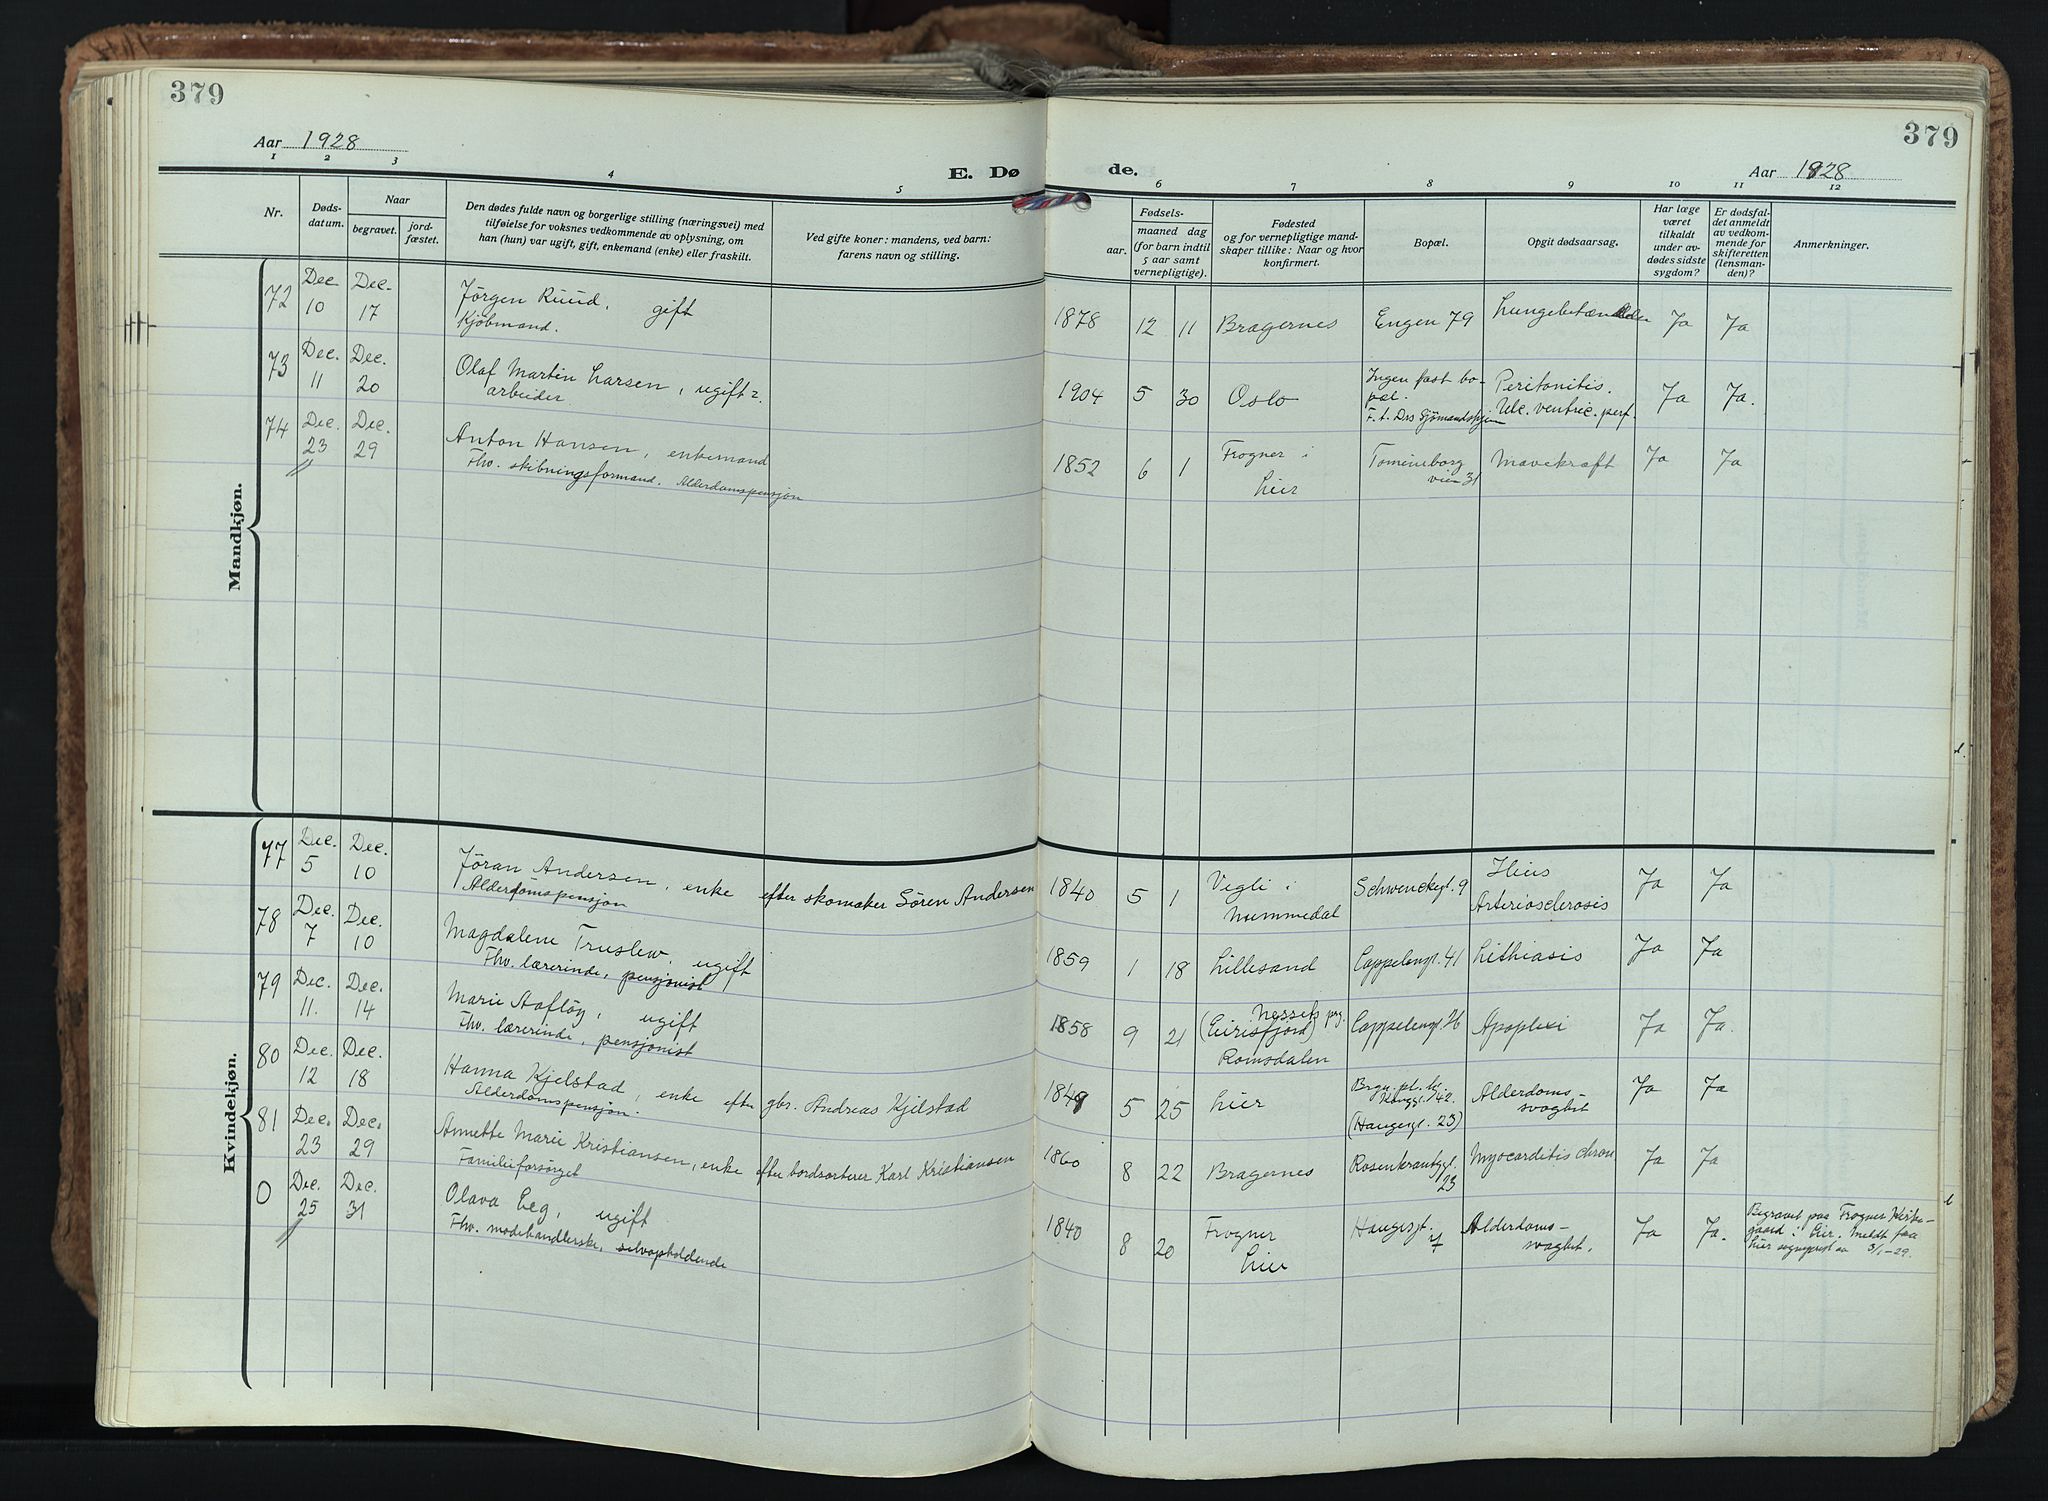 379
Aar 1928
E. Dø
1 2 3 4 5
Nr.
Døds-
datum.
Naar
begravet.
jord-
fæstet.
Den dødes fulde navn og borgerlige stilling (næringsvei) med
tilføielse for voksnes vedkommende av oplysning, om
han (hun) var ugift, gift, enkemand (enke) eller fraskilt.
Ved gifte koner: mandens, ved barn:
farens navn og stilling.
Mandkjøn.
72 Dec 10 Dec. 17 Jörgen Ruud, gift
Kjöbmand.
73 Dec. 11 Dec. 20 Olaf Martin Larsen, ugift
arbeider
74 Dec. 23 Dec. 29 Anton Hansen, enkemand
Fhv. skibningsformand. Alderdomspensjon
Kvindekjøn.
77 Dec. 5 Dec. 10 Jöran Andersen, enke efter skomaker Sören Andersen
Alderdomspensjon
78 Dec. 7 Dec. 10 Magdalene Truslew, ugift
Fhv. lærerinde, pensjonist
79 Dec. 11. Dec. 14 Marie Aaflöy, ugift
Fhv. lærerinde, pensjonist
80 Dec. 12 Dec. 18 Hanna Kjelstad, enke efter gbr. Andreas Kjelstad
Alderdomspensjon.
81 Dec. 23 Dec. 29 Annette Marie Kristiansen, enke efter bordsorterer Karl Kristiansen
Familieforsörget
0 Dec. 25 Dec. 31 Olava Eeg, ugift
Fhv. modehandlerske, selvopholdende
379
de.
Aar 1928
6 7 8 9 10 11 12
Fødsels-
aar.
maaned dag
(for barn indtil
5 aar samt
vernepligtige).
Fødested
og for vernepligtige mand-
skaper tillike: Naar og hvor
konfirmert.
Bopæl.
Opgit dødsaarsag.
Har læge
været
tilkaldt
under av-
dødes sidste
sygdom?
Er dødsfal-
det anmeldt
av vedkom-
mende for
skifteretten
(lensman-
den)?
Anmerkninger.
1878 12 11 Bragernes Engen 79 Ja Ja
1904 5 30 Oslo Ingen fast bo-
pæl.
F. t. Drs Sjömandshjem
Peritonitis.
Ulc. ventric. perf.
Ja Ja.
1852 6 1 Frogner i
Lier
Tomineborg
vein 31
Mavekræft Ja Ja
1840 5 1 Vegli i
Nummedal
Schwenckegt. 9 Ileus
Arteriosclerosis
Ja Ja
1859 1 18 Lillesand Cappelengt. 41 Lithiasis Ja Ja
1858 9 21 Nessets prg.
(Eirisfjord)
Romsdalen
Cappelengt. 26 Apoplexi Ja Ja.
5 25 Lier
(Haugesgt. 23)
Alderdoms-
svaghet
Ja Ja
1860 8 22 Bragernes Rosenkrantzgt.
23
Myocarditis chron Ja Ja
1840 8 20 Frogner
Lier
Haugesgt.
Alderdoms-
svaghet.
Ja Ja.
Begravet paa Frogner Kirke-
gaard i Lier. Meldt fra
Lier sogneprest 3/1-29.